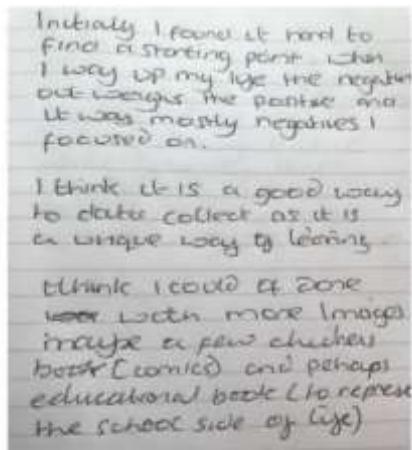 Initialy I found it hard to
find a starting point when
I way up my life the negative
out weighs the positive and
it was mostly negatives I
focused on.
I think it is a good way
to data collect as it is
a unique way of learning
I think I could of done
with more Images
maybe a few childrens
book (comics) and perhaps
educational book (to represe
the school side of life)